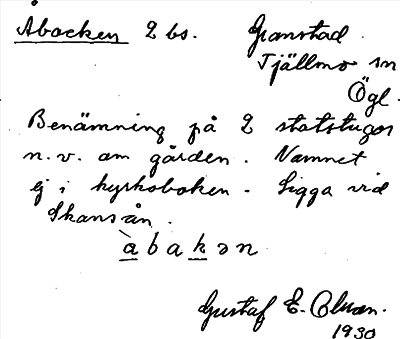 Åbacken 2 bs. Granstad
Tjällmo sn
Ögl
Benämning på 2 statstugor
n.v. om gården. Namnet
ej i kyrkoboken. Ligga vid
Skansån.
àbakən
Gustaf E.
1930